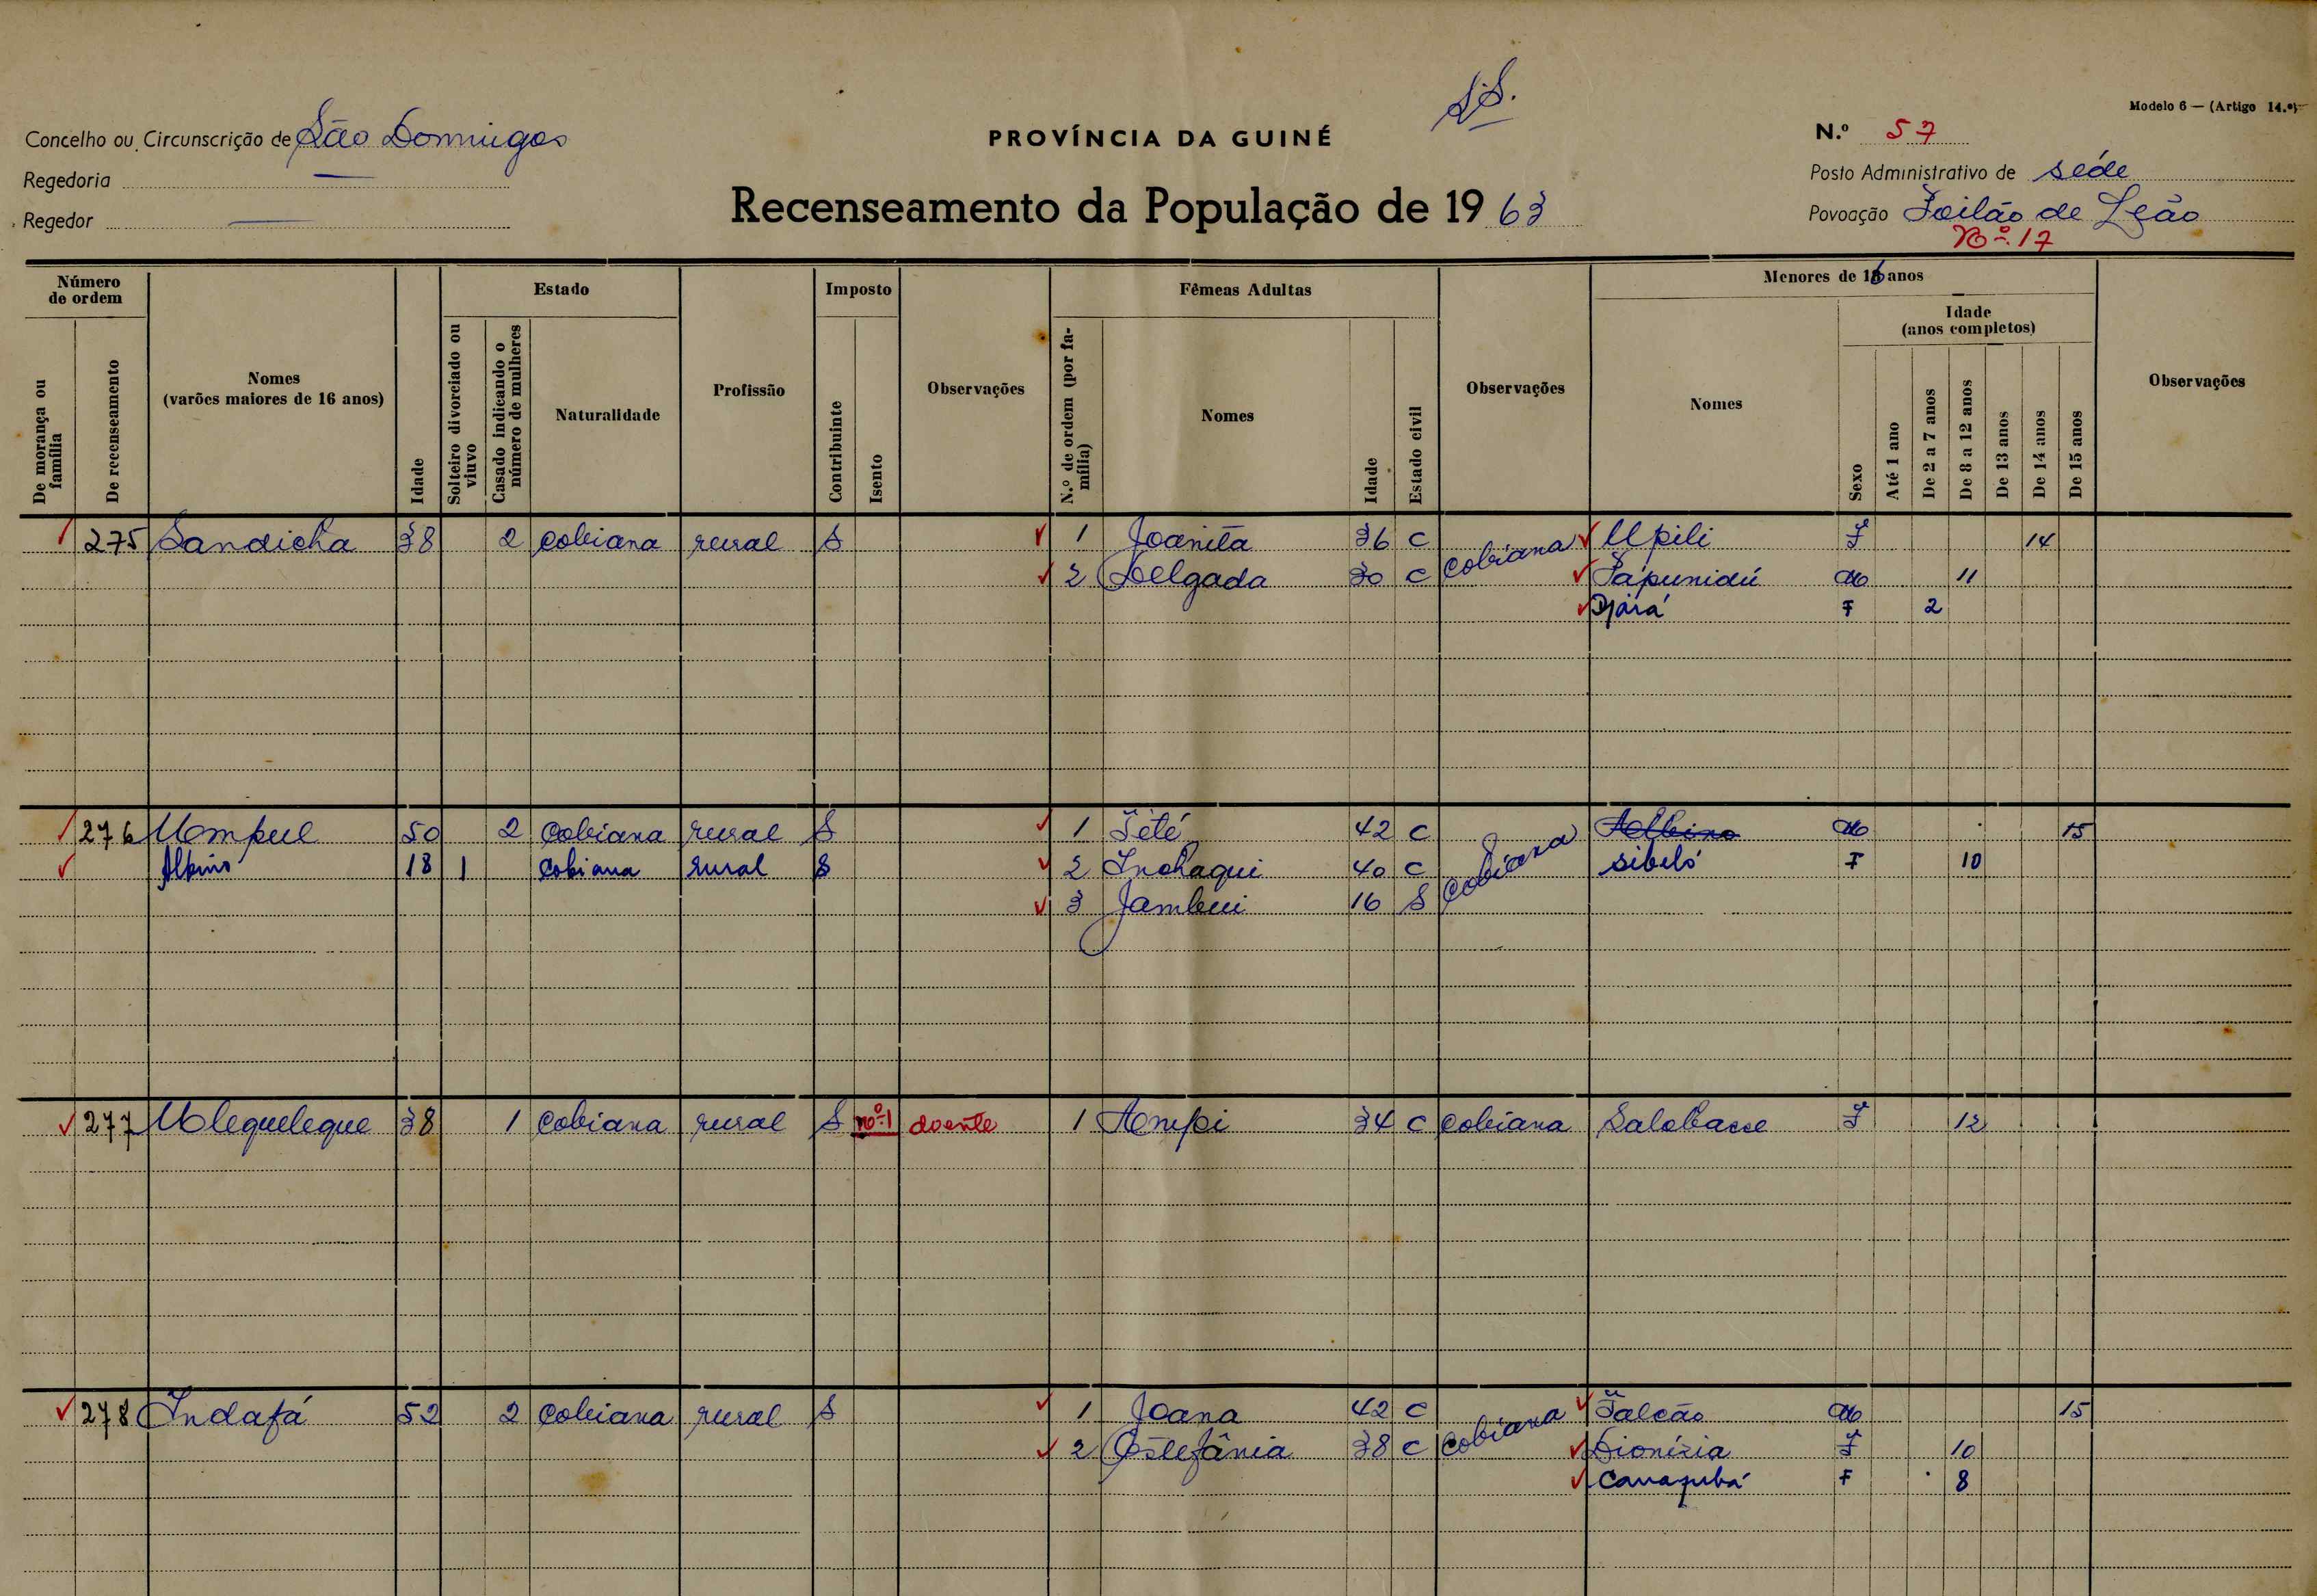 S.S.
Modelo 6 — (Artigo 14.º)
Concelho ou Circunscrição de São Domingos
PROVÍNCIA DA GUINÉ
N.º 57
Regedoria —
Posto Administrativo de séde
Regedor —
Recenseamento da População de 1963
Povoação Foilão de Leão
Nº. 17
Número de ordem
De morança ou família
De recenseamento
Nomes
(varões maiores de 16 anos)
Idade
Estado
Solteiro divorciado ou viuvo
Casado indicando o número de mulheres
Naturalidade
Profissão
Imposto
Contribuinte
Isento
Observações
Fêmeas Adultas
N.º de ordem (por família)
Nomes
Idade
Estado civil
Observações
Menores de 16 anos
Nomes
Sexo
Idade
(anos completos)
Até 1 ano
De 2 a 7 anos
De 8 a 12 anos
De 13 anos
De 14 anos
De 15 anos
Observações
275 Sandicha 38 2 cobiana rural S 1 Joanita 36 C cobiana Upili F 14
2 Delgada 30 C Tápunidú M 11
Djárá F 2
276 Umpul 50 2 cobiana rural S 1 Tété 42 C cobiana Albino M 15
Albino 18 1 cobiana rural S 2 Inchaqui 40 C sibeló F 10
3 Jambui 16 S
277 Uloqueleque 38 1 cobiana rural S nº-1 doente 1 Ampi 34 C cobiana Salobasse F 12
278 Indafá 52 2 cobiana rural S 1 Joana 42 C cobiana Falcão M 15
2 Estefânia 38 C Dionízia F 10
F 8